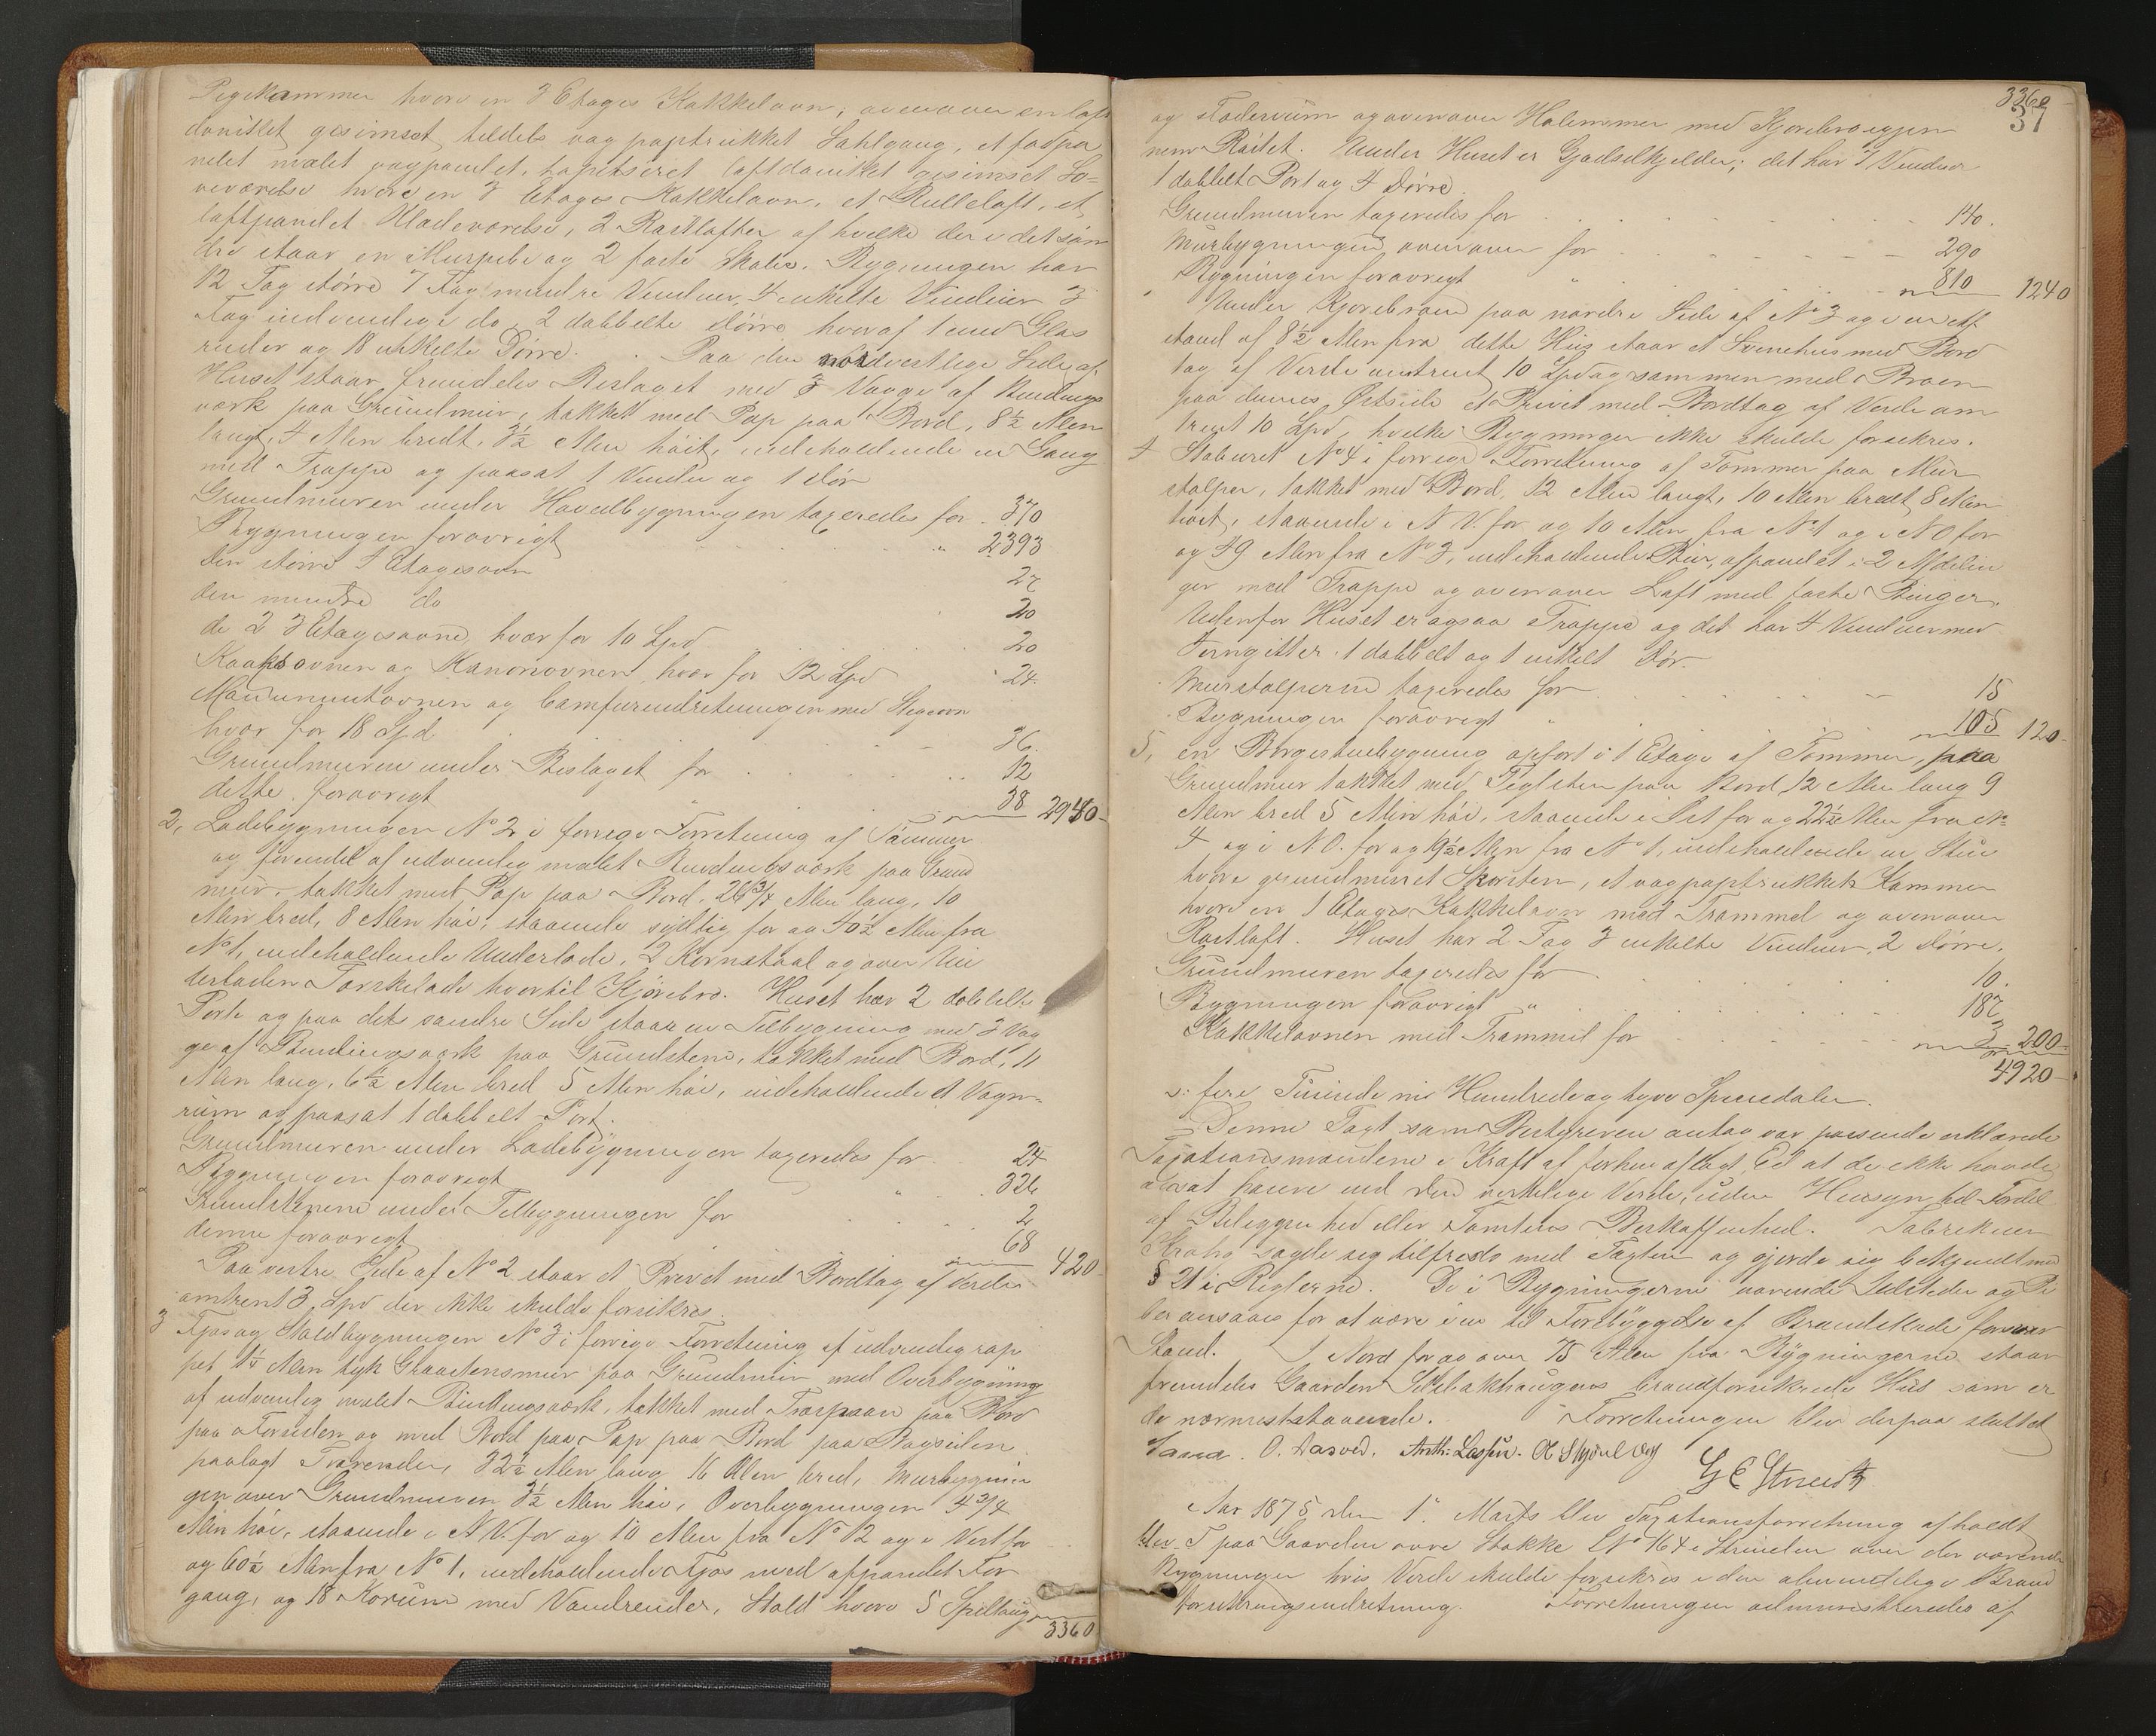 Pigekammer hvori en 3 Etages Kakkelovn, ovenover en loft
daniket gesimset tildels vægpaptrukket Sahlgang, et fladpa
nelet malet vægpanelet, tapetseret loftdaniket gesimset So=
veværelse hvori en 3 Etages Kakkelovn, et Rulleloft, et
loftpanelet Klædeværelse, 2 Røstlofter af hvilke der i det søn
dre staar en Murpibe og 2 faste Skabe. Bygningen har
12 Fag større 7 Fag mindre Vinduer, 4 enkelte Vinduer 3
Fag indvendige do, 2 dobbelte Dørre hvoraf 1 med Glas
ruder og 18 enkelte Dørre. Paa den nordvestlige Side af
Huset staar fremdeles Bislaget med 3 Vægge af Bindings
værk paa Grundmuur, takket med Pap paa Bord, 8½ Alen
langt, 4 Alen bredt, 3½ Alen høit, indeholdende en Gang
med Trappe og paasat 1 Vindue og 1 Dør
Grundmuren under Hovedbygningen taxeredes for . 370
Bygningen forøvrigt " 2393
den større 4 Etagesovn 27
den mindre do 20
de 2 3 Etagesovne, hver for 10 Spd 20
Kaaksovnen og Kanonovnen, hver for 12 Spd 24.
Monumentovnen og Comfurindretningen med Stegeovn
hver for 18 Spd 36.
Grundmuren under Bislaget for 12
dette forøvrigt " 38 2940
2, Ladebygningen No 2 i forrige Forretning af Tømmer
og forendel af udvendig malet Bindingsværk paa Grund
muur, takket med Pap paa Bord, 26¾ Alen lang, 10
Alen bred, 8 Alen høi, staaende sydlig for og 40½ Alen fra
No 1, indeholdende Underlade, 2 Kornstaal og over Un
derladen Tærskelade hvortil Kjørebro. Huset har 2 dobbelte
Porte og paa dets søndre Side staar en Tilbygning med 3 Væg
ge af Bindingsværk paa Grundstene, takket med Bord, 11
Alen lang, 6½ Alen bred 5 Alen høi, indeholdende et Vogn=
rum og paasat 1 dobbelt Port.
Grundmuren under Ladebygningen taxeredes for 24
Bygningen forøvrigt " 326
Grundstenene under Tilbygningen for 2
denne forøvrigt 68 420
Paa vestre Side af No 2 staar et Privet med Bordtag af Værdi
omtrent 3 Spd der ikke skulde forsikres.
3 Fjøs og Staldbygningen No 3 i forrige Forretning af udvendig rap
pet 1¼ Alen tyk Graastensmuur paa Grundmuur med Overbygning
af udvendig malet Bindingsværk, takket med Træspaan paa Bord
paa Forsiden og med Bord paa Pap paa Bord paa Bagsiden
paalagt Tværrender, 32½ Alen lang 16 Alen bred, Murbygnin
gen over Grundmuren 3½ Alen høi, Overbygningen 4¾
Alen høi, staaende i N.V. for og 10 Alen fra No 2 og i Vest for
og 60½ Alen fra No 1, indeholdende Fjøs med afpanelet For
gang, og 18 Korum med Vandrender, Stald hvori 5 Spiltaug
3360
3360
37
og Foderrum og ovenover Halemmer med Kjørebro igjen
nem Røstet. Under Huset er Gjødselkjelder; det har 7 Vinduer
1 dobbelt Port og 4 Dørre.
Grundmuren taxeredes for 140.
Murbygningen ovenover for 290
Bygningen forøvrigt " 810 1240
Under Kjørebroen paa nordre Side af No 3 og i en Af
stand af 8½ Alen fra dette Hus staar et Svinehus med Bord
tag af Værdi omtrent 10 Spd og sammen med Broen
paa dennes Østside et Privet med Bordtag af Værdi om
trent 10 Spd, hvilke Bygninger ikke skulde forsikres.
4 Staburet No 4 i forrige Forretning af Tømmer paa Mur
stolper, takket med Bord, 12 Alen langt, 10 Alen bredt 8 Alen
høit, staaende i N.V. for og 10 Alen fra No 1 og i NO for
og 49 Alen fra No 3, indeholdende Bur, afpanelet i 2 Afdelin
ger med Trappe og ovenover Loft med faste Binger.
Udenfor Huset er ogsaa Trappe og det har 4 Vinduer med
Jerngitter 1 dobbelt og 1 enkelt Dør.
Murstolperne taxeredes for 15
Bygningen forøvrigt " 105 120
5, en Borgestuebygning opført i 1 Etage af Tømmer paa
Grundmur takket med Teglsten paa Bord, 12 Alen lang 9
Alen bred 5 Alen høi, staaende i Øst for og 22½ Alen fra No
4 og i N.O. for og 19½ Alen fra No 1, indeholdende en Stue
hvori grundmuret Skorsten, et vægpaptrukket Kammer
hvori en 1 Etages Kakkelovn med Trommel og ovenover
Røstloft. Huset har 2 Fag 3 enkelte Vinduer, 2 Dørre.
Grundmuren taxeredes for 10.
Bygningen forøvrigt " 187
Kakkelovnen med Trommel for 3 200
4920
fire Tusinde ni Hundrede og tyve Speciedaler.
Denne Taxt som Bestyreren antog var passende erklærede
Taxationsmændene i Kraft af forhen aflagt Ed at de ikke havde
ansat høiere end den virkelige Værdi, uden Hensyn til Fordel
af Beliggenhed eller Tomtens Beskaffenhed. Fabrikeier
sagde sig tilfreds med Taxten og gjorde sig bekjendt med
§ 21 i Reglerne. De i Bygningerne værende Ildsteder og Pi
ber ansaaes for at være i en til Forebyggelse af Brandskade forsvar
Stand. I Nord for og over 75 Alen fra Bygningerne staar
fremdeles Gaarden brandforsikrede Hus som er
de nærmeststaaende. Forretningen blev derpaa sluttet
O. Aasved. Anth: Lassen.
Aar 1875 den 1. Marts blev Taxationsforretning afholdt
paa Gaarden øvre Stokke LNo 164 i Strinden over der værende
Bygninger hvis Værdi skulde forsikres i den almindelige Brand
forsikringsindretning. Forretningen administreredes af